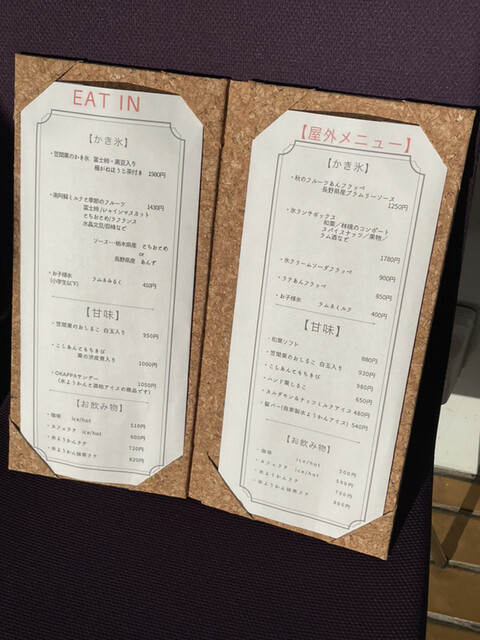 EAT IN
【かき氷】
・笠間栗のかき氷 富士柿・黒豆入り
極がねほうじ茶付き 1980円
・南阿蘇ミルクと季節のフルーツ 1430円
富士柿/シャインマスカット
とちおとめ/ラフランス
水晶文旦/巨峰など
ソース…栃木県産 とちおとめ
or
長野県産 あんず
・お子様氷 ラムネみるく 410円
(小学生以下)
【甘味】
・笠間栗のおしるこ 白玉入り 950円
・こしあんともちきび 1000円
栗の渋皮煮入り
・OKAPPAサンデー 1050円
(水ようかんと酒粕アイスの商品です)
【お飲み物】
・珈琲 ice/hot 510円
・カフェラテ ice/hot 600円
・水ようかんラテ 720円
・水ようかん抹茶ラテ 820円
【屋外メニュー】
【かき氷】
・秋のフルーツあんフラッペ
長野県産プラムリーソース
1250円
・氷ランチボックス
和栗/林檎のコンポート
スパイスナッツ/果物/
ラム酒など
1780円
・氷クリームソーダフラッペ 900円
・ラテあんフラッペ 850円
・お子様氷 ラムネミルク 400円
【甘味】
・和栗ソフト 880円
・笠間栗のおしるこ 白玉入り 930円
・こしあんともちきび 980円
・ハンデ栗しるこ 650円
・カルダモン&ナッツミルクアイス 480円
・髪バー(自家製水ようかんアイス) 540円
【お飲み物】
・珈琲 ice/hot 500円
・カフェラテ ice/hot 590円
・水ようかんラテ 700円
・水ようかん抹茶ラテ 800円